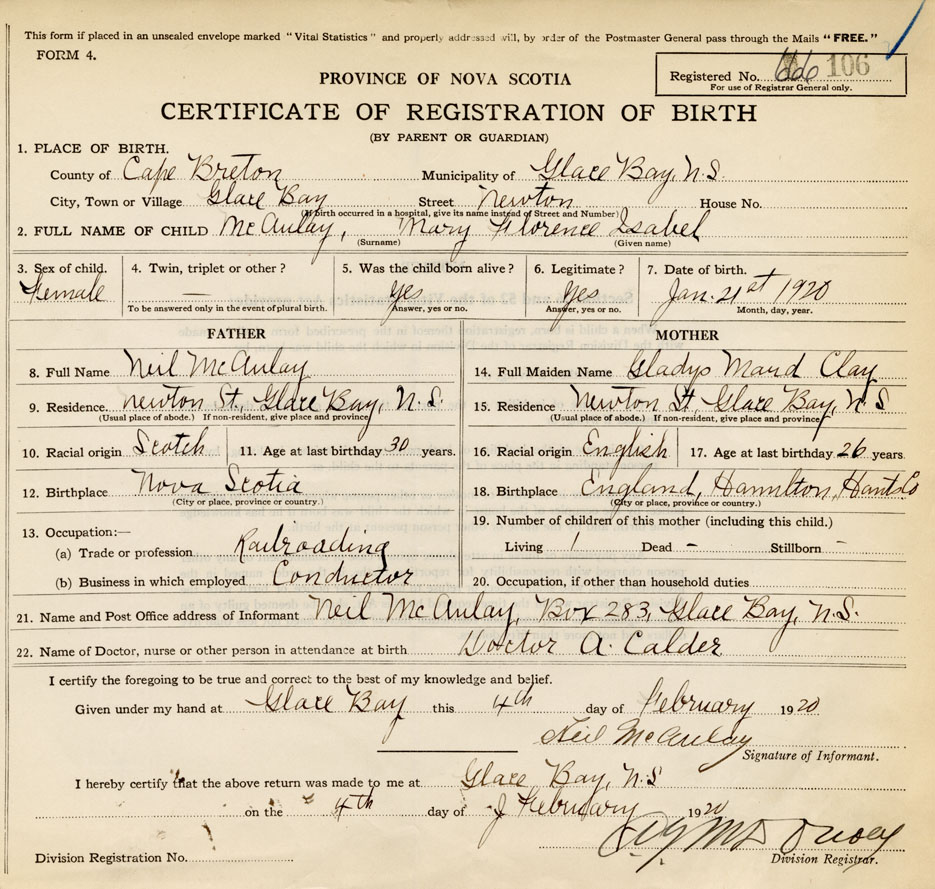 This form if placed in an unsealed envelope marked "Vital Statistics" and properly addressed will, by order of the Postmaster General pass through the Mails "FREE."
FORM 4.
Registered No. 106
For use of Registrar General only.
PROVINCE OF NOVA SCOTIA
CERTIFICATE OF REGISTRATION OF BIRTH
(BY PARENT OR GUARDIAN)
1. PLACE OF BIRTH.
County of Cape Breton Municipality of Glace Bay, N.S.
City, Town or Village Glace Bay Street Newton House No.
(If birth occurred in a hospital, give its name instead of Street and Number)
2. FULL NAME OF CHILD McAulay, Mary Florence Isabel
(Surname) (Given name)
3. Sex of child. 4. Twin, triplet or other? 5. Was the child born alive? 6. Legitimate? 7. Date of birth.
Female — Yes Yes Jan. 21st 1920
To be answered only in the event of plural birth. Answer, yes or no. Answer, yes or no. Month, day, year.
FATHER MOTHER
8. Full Name Neil McAulay 14. Full Maiden Name Gladys Maud Clay
9. Residence. Newton St., Glace Bay, N.S. 15. Residence Newton St, Glace Bay, N.S
(Usual place of abode.) If non-resident, give place and province) (Usual place of abode.) If non-resident, give place and province)
10. Racial origin Scotch 11. Age at last birthday 30 years. 16. Racial origin English 17. Age at last birthday 26 years.
12. Birthplace Nova Scotia 18. Birthplace England, Hamilton, Hants Co
(City or place, province or country.) (City or place, province or country.)
13. Occupation:— 19. Number of children of this mother (including this child.)
(a) Trade or profession Railroading Living 1 Dead – Stillborn –
(b) Business in which employed Conductor 20. Occupation, if other than household duties
21. Name and Post Office address of Informant Neil McAulay, Box 283, Glace Bay, N.S.
22. Name of Doctor, nurse or other person in attendance at birth Doctor A. Calder
I certify the foregoing to be true and correct to the best of my knowledge and belief.
Given under my hand at Glace Bay this 4th day of February 1920
Neil McAulay
Signature of Informant.
I hereby certify that the above return was made to me at Glace Bay, N.S
on the 4th day of February 1920
Division Registration No. Division Registrar.